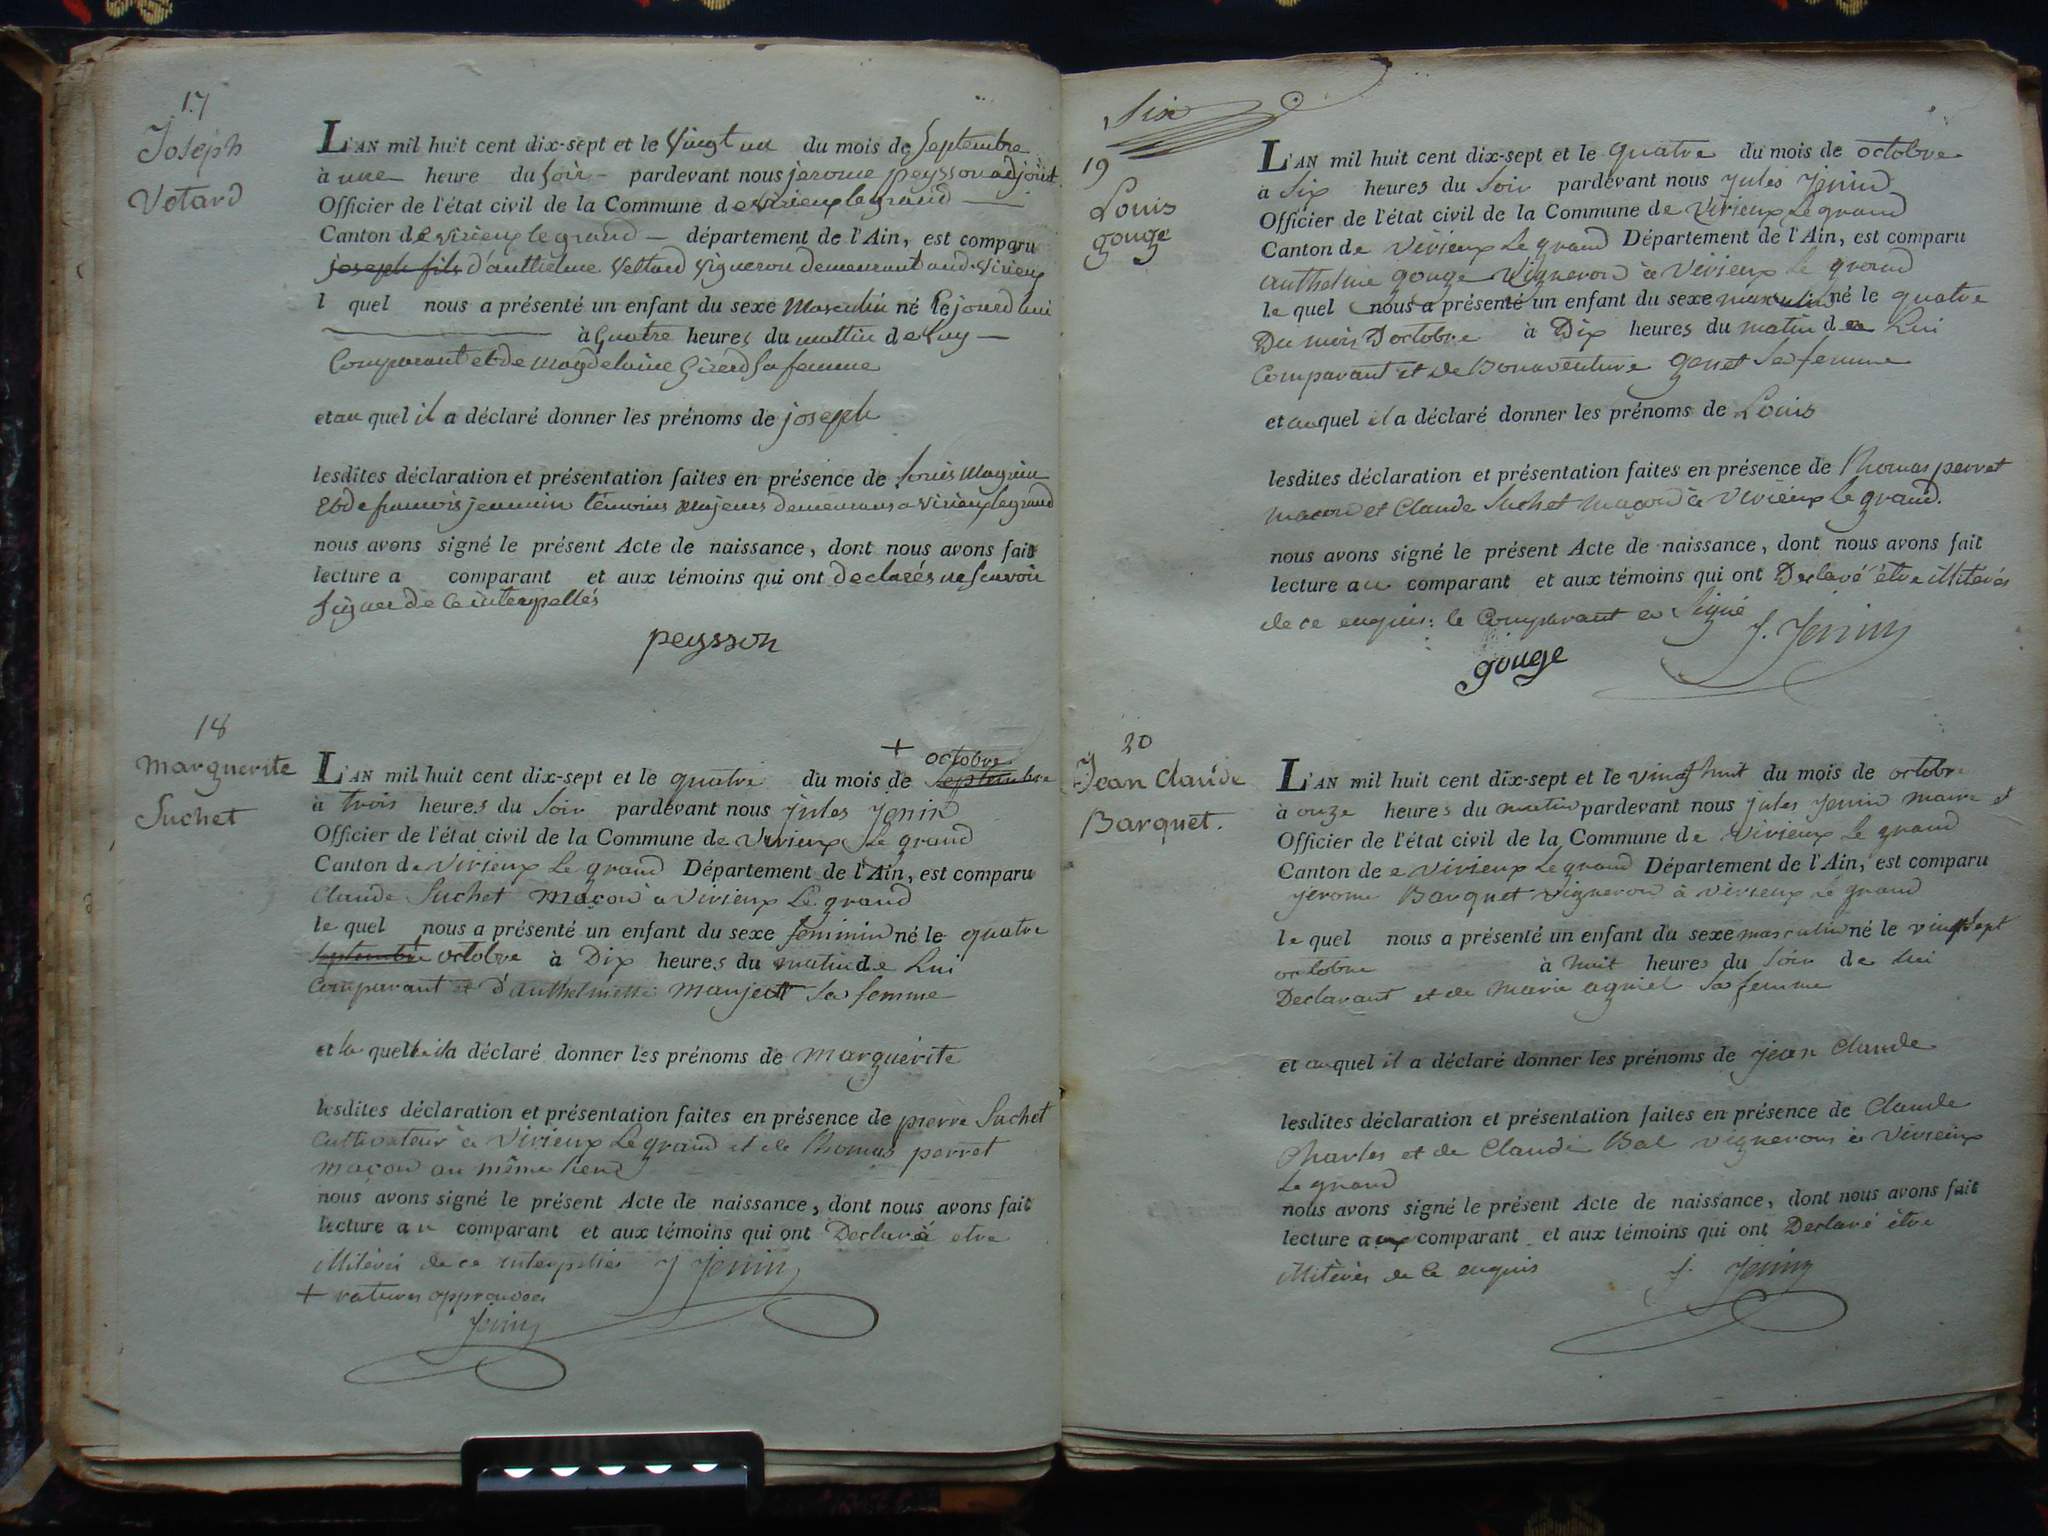 17
Joseph
Vetard
L'AN mil huit cent dix-sept et le vingt un du mois de Septembre
à une heure du soir pardevant nous jerome peysson adjoint
Officier de l'état civil de la Commune de virieux le grand
Canton de virieux le grand département de l'Ain, est comparu
joseph fils d'anthelme Vettard vigneron demeurant aud. virieux
l quel nous a présenté un enfant du sexe Masculin né le jourd'hui
à quatre heures du mattin de luy
Comparant et de magdelaine Girerd sa femme
et au quel il a déclaré donner les prénoms de joseph
lesdites déclaration et présentation faites en présence de Louis Magnin
et de francois jeannin témoins majeurs demeurans a virieux le grand
nous avons signé le présent Acte de naissance, dont nous avons fait
lecture a comparant et aux témoins qui ont declarés ne scavoir
signer de ce interpellés
peysson
18
Marguerite
Suchet
L'AN mil huit cent dix-sept et le quatre du mois de + octobre Septembre
à trois heures du soir pardevant nous jules Jenin
Officier de l'état civil de la Commune de Virieux Le grand
Canton de Virieux Le grand Département de l'Ain, est comparu
Claude Suchet maçon à Virieux Le grand
le quel nous a présenté un enfant du sexe feminin né le quatre
septembre octobre à Dix heures du matin de Lui
Comparant et d'anthelmette manjett sa femme
et la quelle il a déclaré donner les prénoms de marguérite
lesdites déclaration et présentation faites en présence de pierre Suchet
Cultivateur à Virieux Le grand et de Thomas perret
maçon au même lieu
nous avons signé le présent Acte de naissance, dont nous avons fait
lecture au comparant et aux témoins qui ont Declaré etre
illitérés de ce interpellés J Jenin
+ ratures approuvées
Jenin
Six
19
Louis
gouge
L'AN mil huit cent dix-sept et le quatre du mois de octobre
à Six heures du Soir pardevant nous Jules Jenin
Officier de l'état civil de la Commune de Virieux Le grand
Canton de Virieux Le grand Département de l'Ain, est comparu
anthelme gouge Vigneron à Virieux le grand
le quel nous a présenté un enfant du sexe masculin né le quatre
Du mois D'octobre à Dix heures du matin de Lui
Comparant et de Bonaventure genet sa femme
et auquel il a déclaré donner les prénoms de Louis
lesdites déclaration et présentation faites en présence de Thomas perret
macon et Claude Suchet maçon à Virieux le grand.
nous avons signé le présent Acte de naissance, dont nous avons fait
lecture au comparant et aux témoins qui ont Declaré être illitérés
de ce enquis: le Comparant a Signé J. Jenin
gouge
20
Jean Claude
Barquet.
L'AN mil huit cent dix-sept et le vingt huit du mois de octobre
à onze heures du matin pardevant nous jules Jenin maire et
Officier de l'état civil de la Commune de Virieux Le grand
Canton de e Virieux Le grand Département de l'Ain, est comparu
jerome Barquet Vigneron à Virieux Le grand
le quel nous a présenté un enfant du sexe masculin né le vingt sept
octobre à huit heures du Soir de lui
Declarant et de marie agniel sa femme
et auquel il a déclaré donner les prénoms de jean Claude
lesdites déclaration et présentation faites en présence de Claude
Charles et de Claude Bal vignerons à Virieux
Le grand
nous avons signé le présent Acte de naissance, dont nous avons fait
lecture aux comparant et aux témoins qui ont Declaré être
illitèrés de Ce enquis J. Jenin